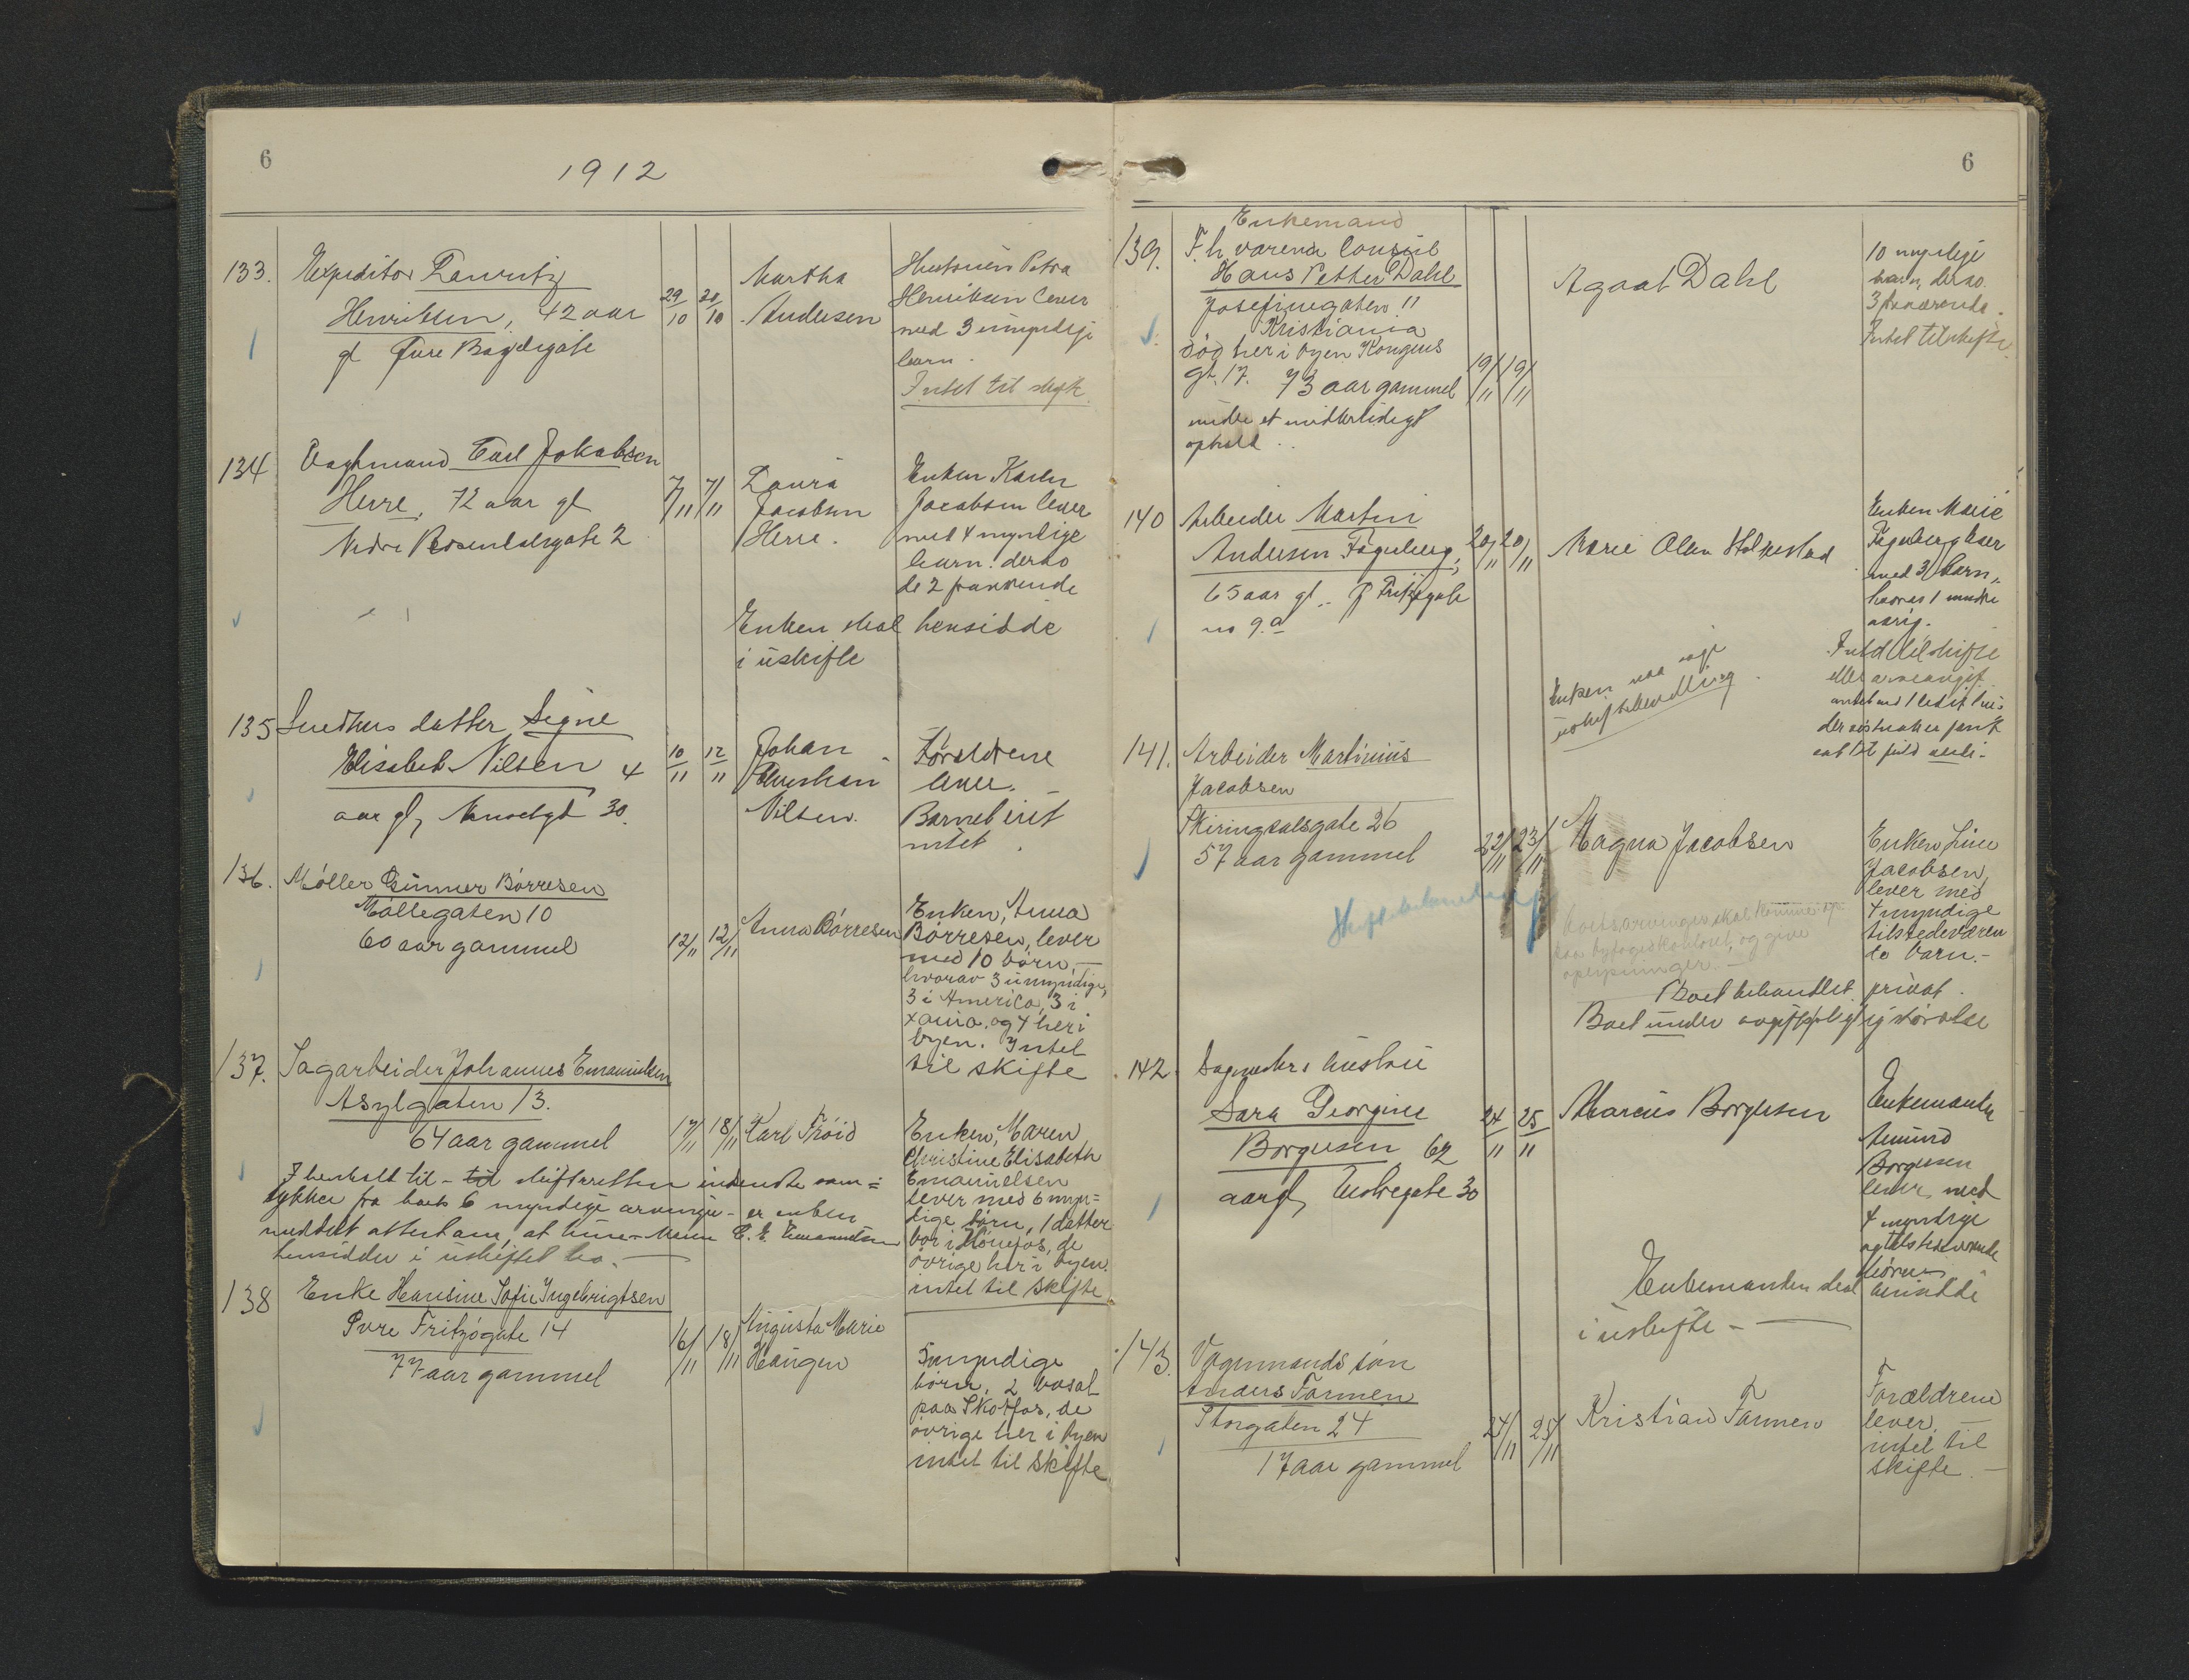 6
1912
133. Expeditør Lauritz
Henriksen, 42 aar
gl Øvre Bagelsgate
29/10 28/10
Martha
Andersen
Hustruen Petra
Henriksen lever
med 3 umyndige
barn.
Intet til skifte
134 Vagtmand Carl Jokabsen
Herre, 72 aar gl
Nedre Rosendalsgate 2
7/11 7/11
Laura
Jacobsen
Herre.
Enken Karen
Jacobsen lever
med 4 myndige
barn
de 2
Enken skal hensidde
i uskifte
135 datter Signe
Elisabeth Nilsen 4
aar gl, 30.
10/11 12/11
Johan
Nilsen.
Forældrene
lever.
Barnet eiet
intet.
136. Møller Gunner Börresen
Möllegaten 10
60 aar gammel
12/11 12/11
Anna Börresen
Enken, Anna
Borresen, lever
med 10 börn,
hvorav 3 umyndige,
3 i America, 3 i
Xania. og 4 her i
byen. Intet
til skifte
137. Sagarbeider Johannes Emanuelsen
Asylgaten 13.
64 aar gammel
17/11 18/11
Karl Fröid
Enken, Maren
Christine Elisabeth
Emanuelsen
lever med 6 myn=
dige börn, 1 datter
bor i Hönefos, de
övrige her i byen
intet til skifte
I henhold til - til skifteretten indsendte sam=
tykker fra boets 6 myndige arvinger - er enken
meddelt attest om, at hun - Maren C. E. Emanuelsen
hensidder i uskiftet bo.
138 Enke Hansine Sofie Ingebrigtsen
Övre Fritzögate 14
77 aar gammel
16/11 18/11
Augusta Marie
Haugen
5 myndige
börn, 2 bosat
paa Skotfos, de
övrige her i byen
intet til skifte
6
Enkemand
139. F. h. varend Consul
Hans Petter Dahl
Josefinegaten 11
Kristiania
död her i byen Kongens
gt. 17. 73 aar gammel
under et midlertidigt
ophold.
19/11 19/11
Agaat Dahl
10 myndige
barn, derav
3
Intet til skifte
140 Arbeider Martin
Andersen Fagerberg,
65 aar gl. Fritzøgate
no 9.a
20/11 20/11
Marie Olea Holkestad
Enken Marie
Fagerberg lever
med 3 barn,
hvorav 1 mindre
aarig.
Intet til skifte
Enken maa søge
skiftebevilling
141. Arbeider Martinius
Jacobsen
Skiringsalsgate 26
57 aar gammel
22/11 23/11
Magna Jacobsen
Enken Line
Jacobsen,
lever med
4 myndige
tilstedeværen
de barn.-
Boets arvinger skal komme op
paa byfogedkontoret, og give
oplysninger.
Boet behandlet privat.
Boet under
142. Sagmesters hustru
Sara Georgine
Borgersen 62
aar gl, 30
24/11 25/11
Marcus Borgersen
Enkemanden
Amund
Borgersen
lever med
4 myndige
og tilstedeværende
börn
Enkemanden skal hensidde
i uskifte -
143. Vognmands sön
Anders Farmen
Storgaten 24
17 aar gammel
24/11 25/11
Kristian Farmen
Forældrene
lever,
intet til
skifte.